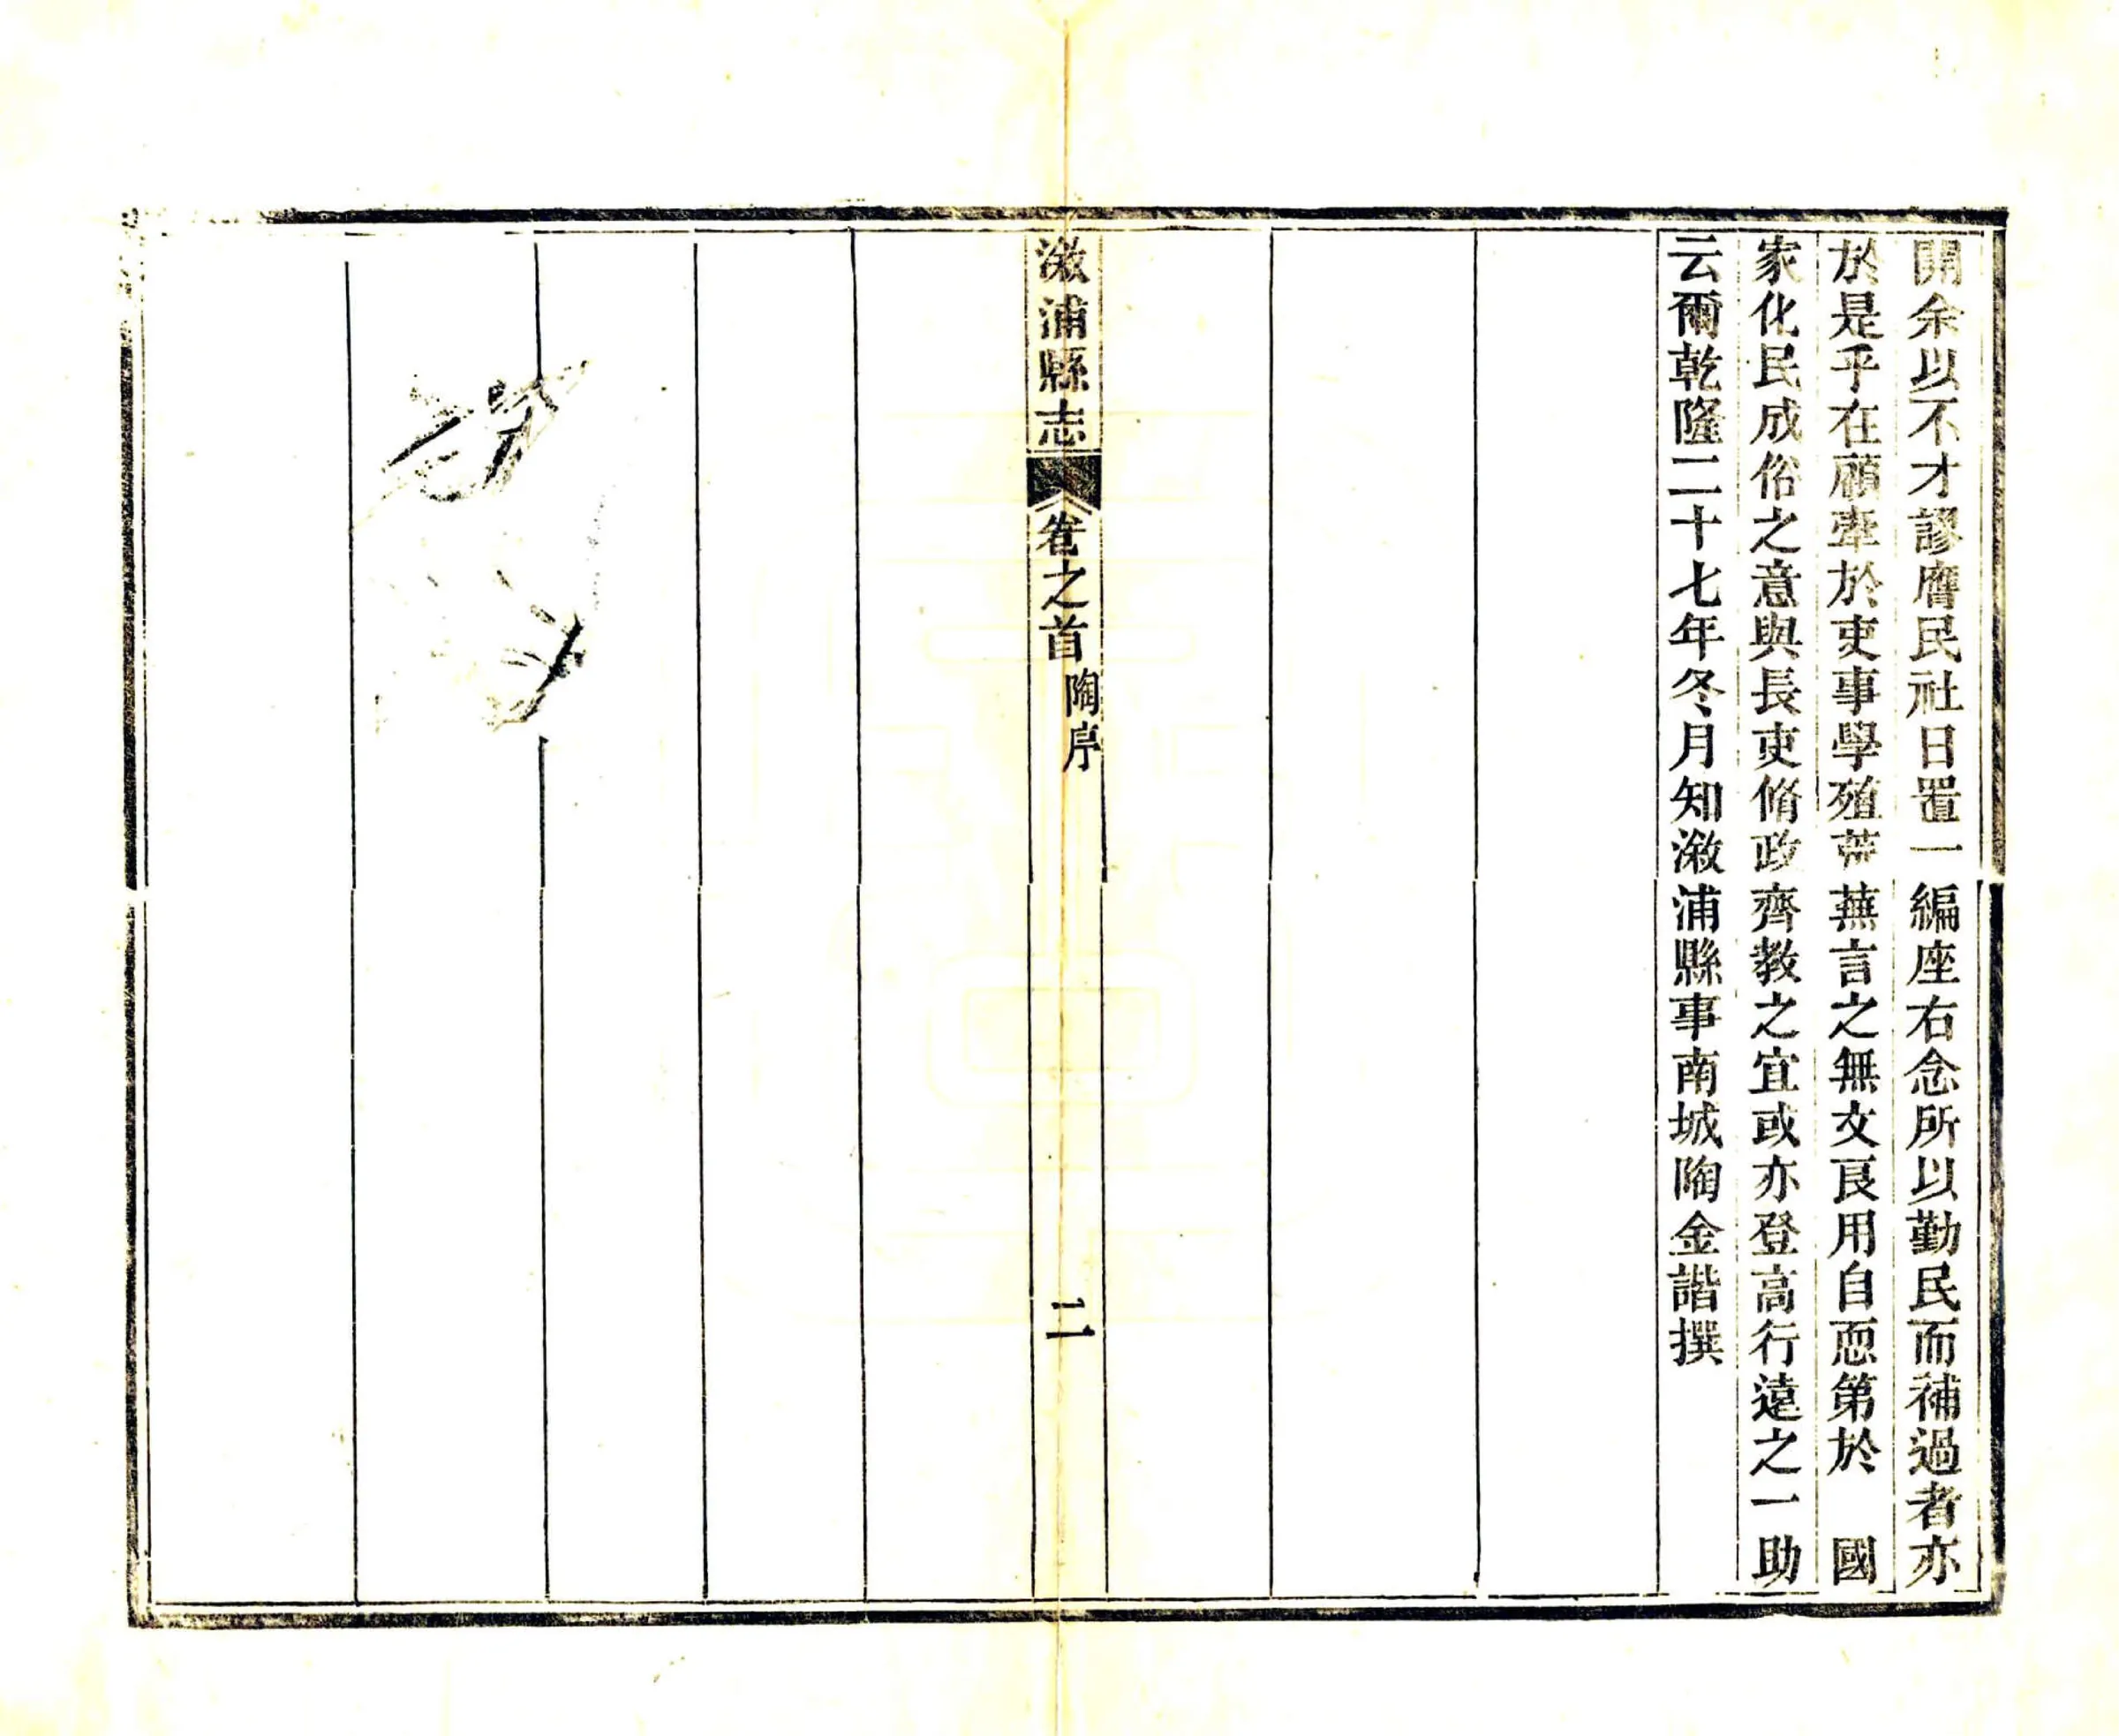 開余以不才謬膺民社日置一編座右念所以勤民而補過者亦
於是乎在顧牽於吏事學殖荒蕪言之無文良用自恧第於　國
家化民成俗之意與長吏脩政齊教之宜或亦登高行遠之一助
云爾乾隆二十七年冬月知漵浦縣事南城陶金諧撰
漵浦縣志
卷之首
陶序
二